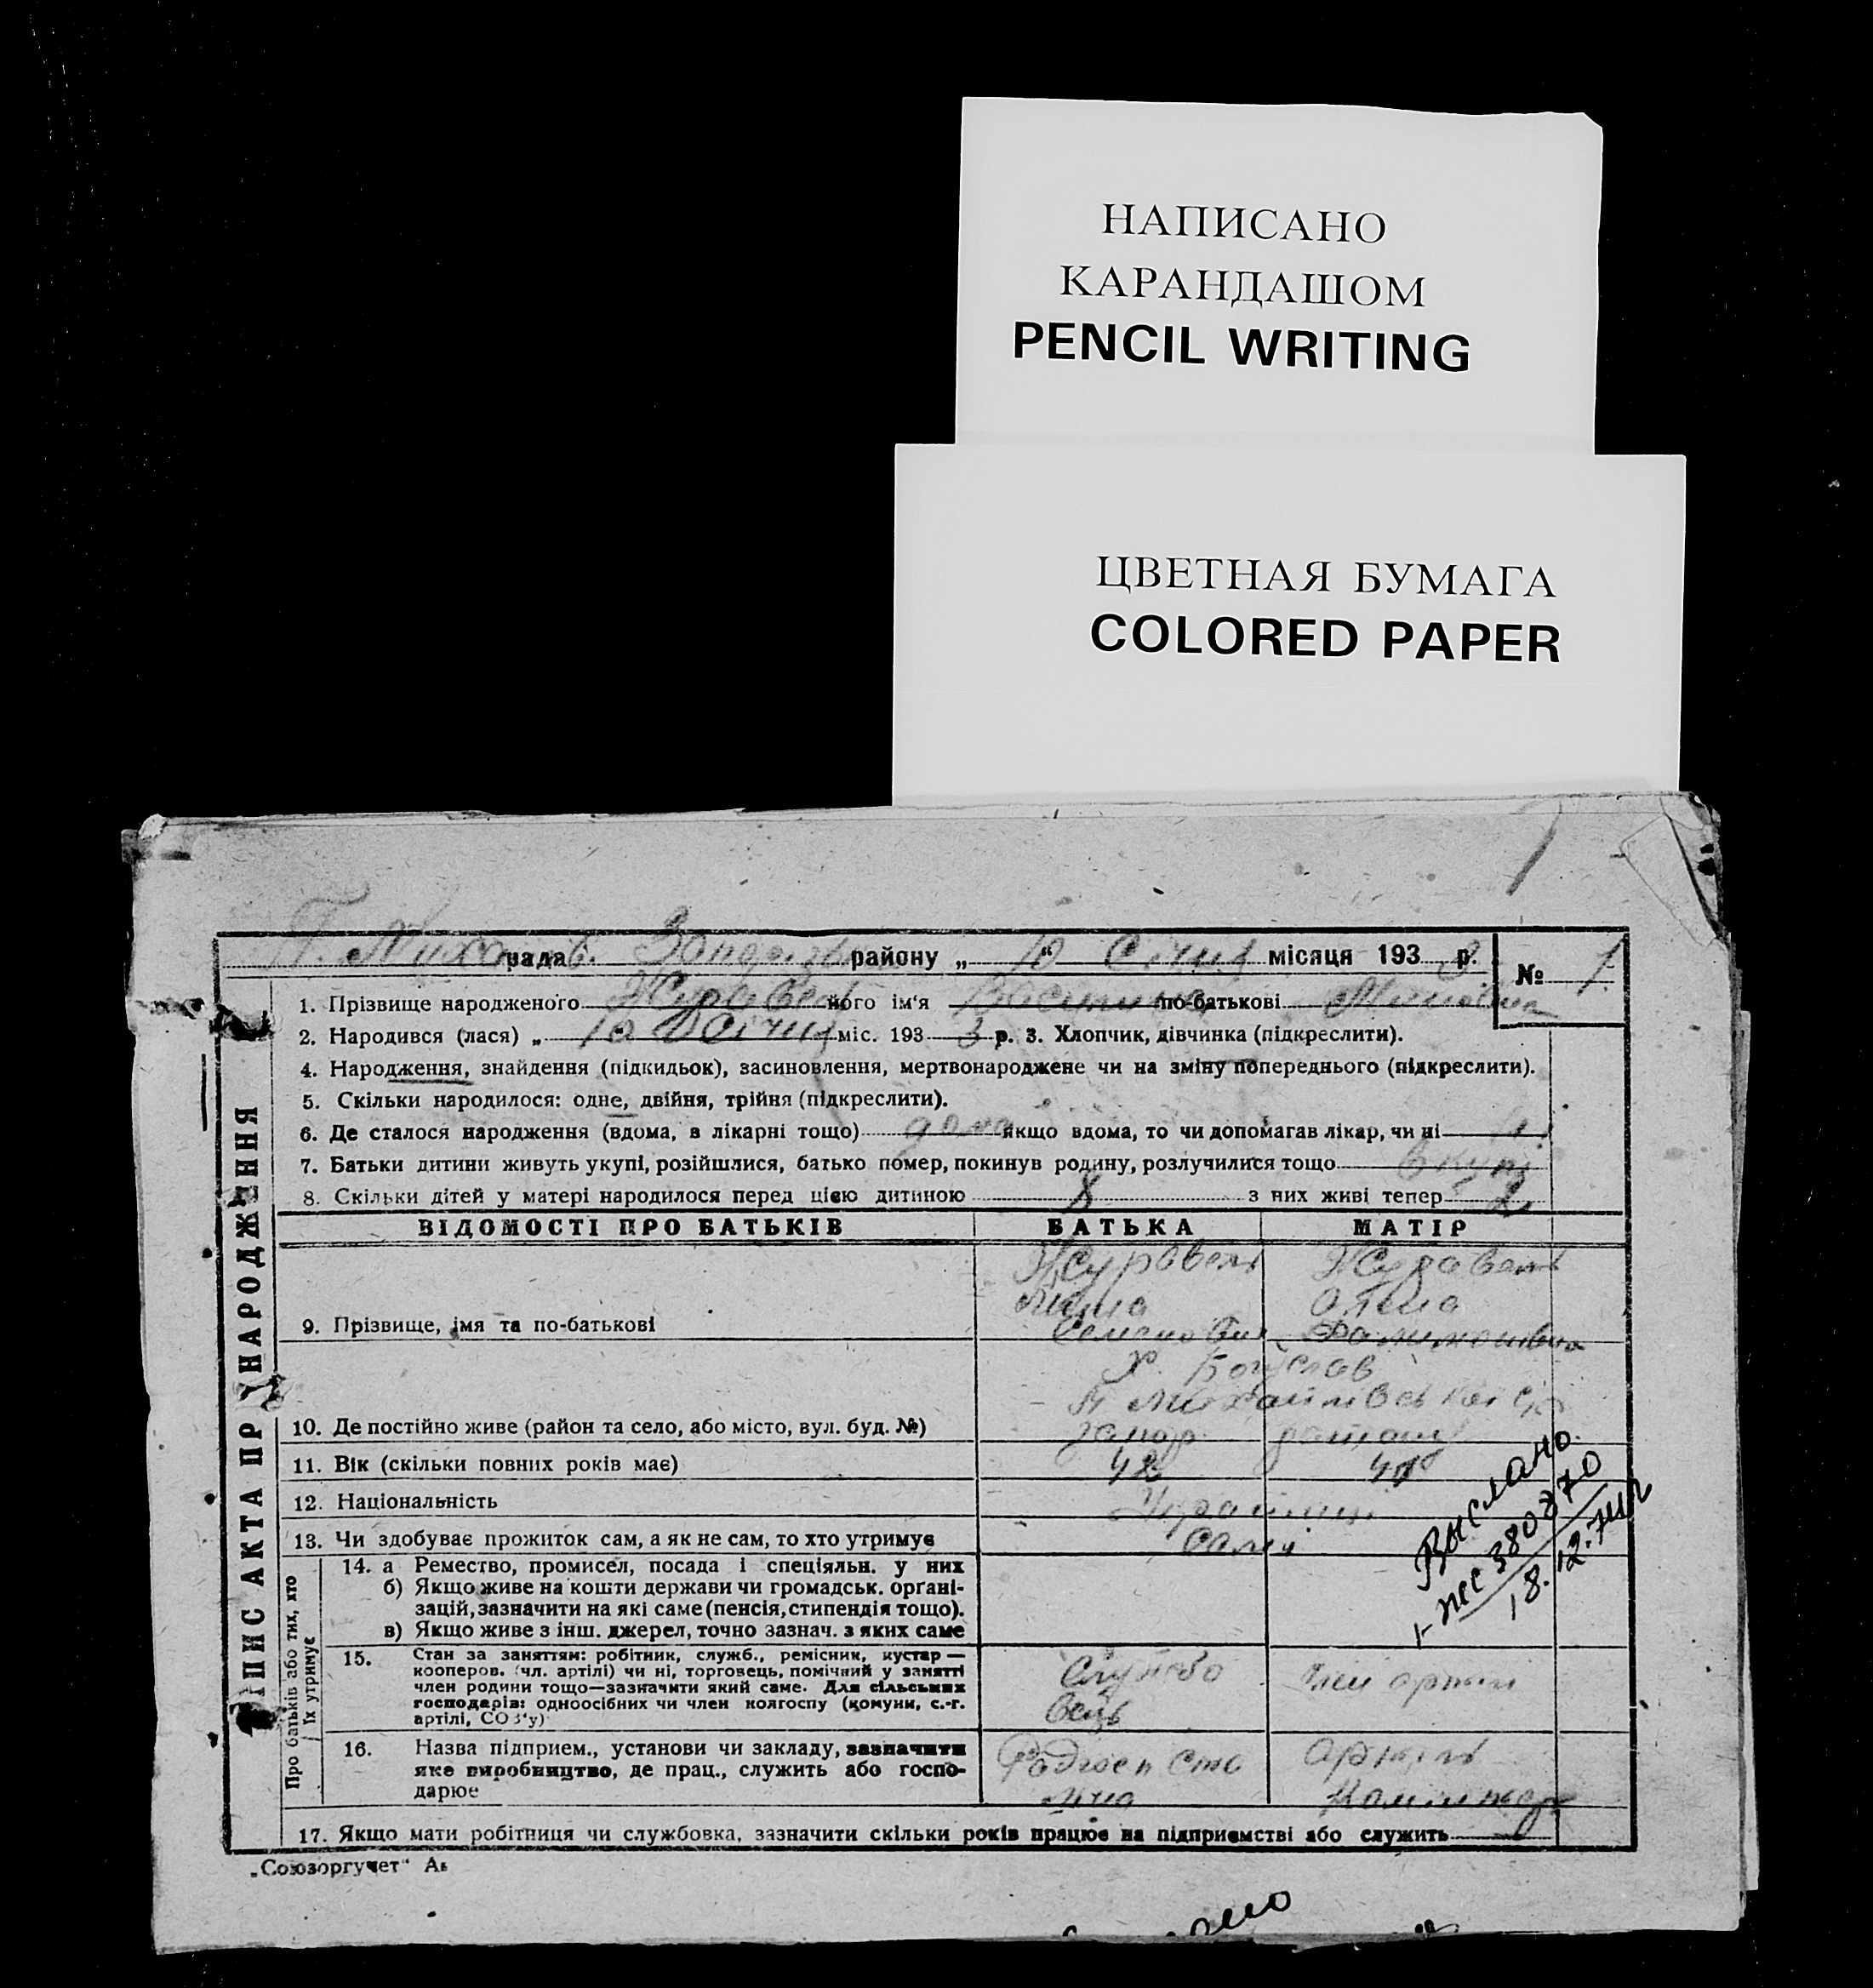 НАПИСАНО
КАРАНДАШОМ
PENCIL WRITING
ЦВЕТНАЯ БУМАГА
COLORED PAPER
рада району „ 10 “ Січня місяця 193 3 р. № 1
1. Прізвище народженого Журавель його ім‘я по-батькові
2. Народився (лася) „ 10 Січня міс. 193 3 р. 3. Хлопчик, дівчинка (підкреслити).
4. Народження, знайдення (підкидьок), засиновлення, мертвонароджене чи на зміну попереднього (підкреслити).
5. Скільки народилося: одне, двійня, трійня (підкреслити).
6. Де сталося народження (вдома, в лікарні тощо) дома якщо вдома, то чи допомагав лікар, чи ні
7. Батьки дитини живуть укупі, розійшлися, батько помер, покинув родину, розлучилися тощо вкупі
8. Скільки дітей у матері народилося перед цією дитиною 8 з них живі тепер 2
ВІДОМОСТІ ПРО БАТЬКІВ БАТЬКА МАТІР
Журавель Журавель
Олена
9. Прізвище, імя та по-батькові
Х. Богуслав
10. Де постійно живе (район та село, або місто, вул. буд. №)
11. Вік (скільки повних років має) 42
12. Національність Українці
13. Чи здобуває прожиток сам, а як не сам, то хто утримує Самі
14. а Ремество, промисел, посада і спеціяльн. у них
б) Якщо живе на кошти держави чи громадськ. орґані-
зацій, зазначити на які саме (пенсія, стипендія тощо).
в) Якщо живе з інш. джерел, точно зазнач. з яких саме
15. Стан за заняттям: робітник, служб., ремісник, кустар —
кооперов. (чл. артілі) чи ні, торговець, помічний у занятті
член родини тощо—зазначити який саме. Для сільських
господарів: одноосібних чи член колгоспу (комуни, с.-г.
артілі, СОЗ‘у)
Службо
вець
член артілі
16. Назва підприєм., установи чи закладу, зазначити
яке виробництво, де прац., служить або госпо-
дарює
Радгосп
Артіль
17. Якщо мати робітниця чи службовка, зазначити скільки років працює на підприємстві або служить
Выслано
380870
18.12.
ЗАПИС АКТА ПРО НАРОДЖЕННЯ
Про батьків або тих, хто
їх утримує
„Союзоргучет“